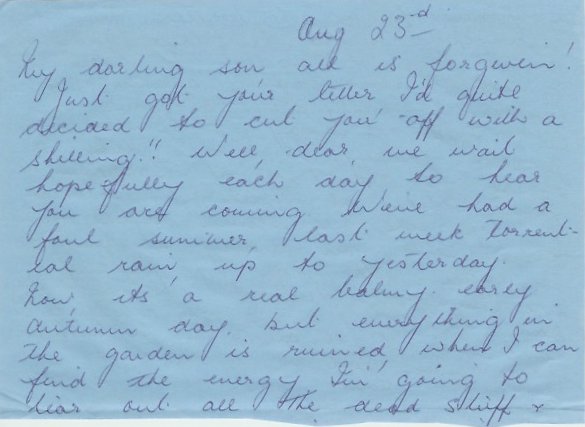 Aug 23rd
My darling son all is forgivein!
Just got your letter I'd quite
decided to cut you off with a
shilling!! Well dear we wait
hopefully each day to hear
you are coming We've had a
foul summer, last week Torrent-
ial rain up to yesterday.
Now its a real balmy earey
autumn day. but everything in
the garden is ruined when I can
find the energy I'm going to
tear out all the dead stuff &